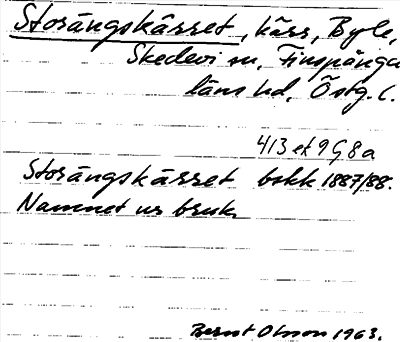 Storängskärret, kärr, Byle,
Skedevi sn, Finspånga
läns hd, Östg. l.
413 et 9 G 8 a
Storängskärret bskk 1887/88.
Namnet ur bruk.
Bernt Olsson 1963.